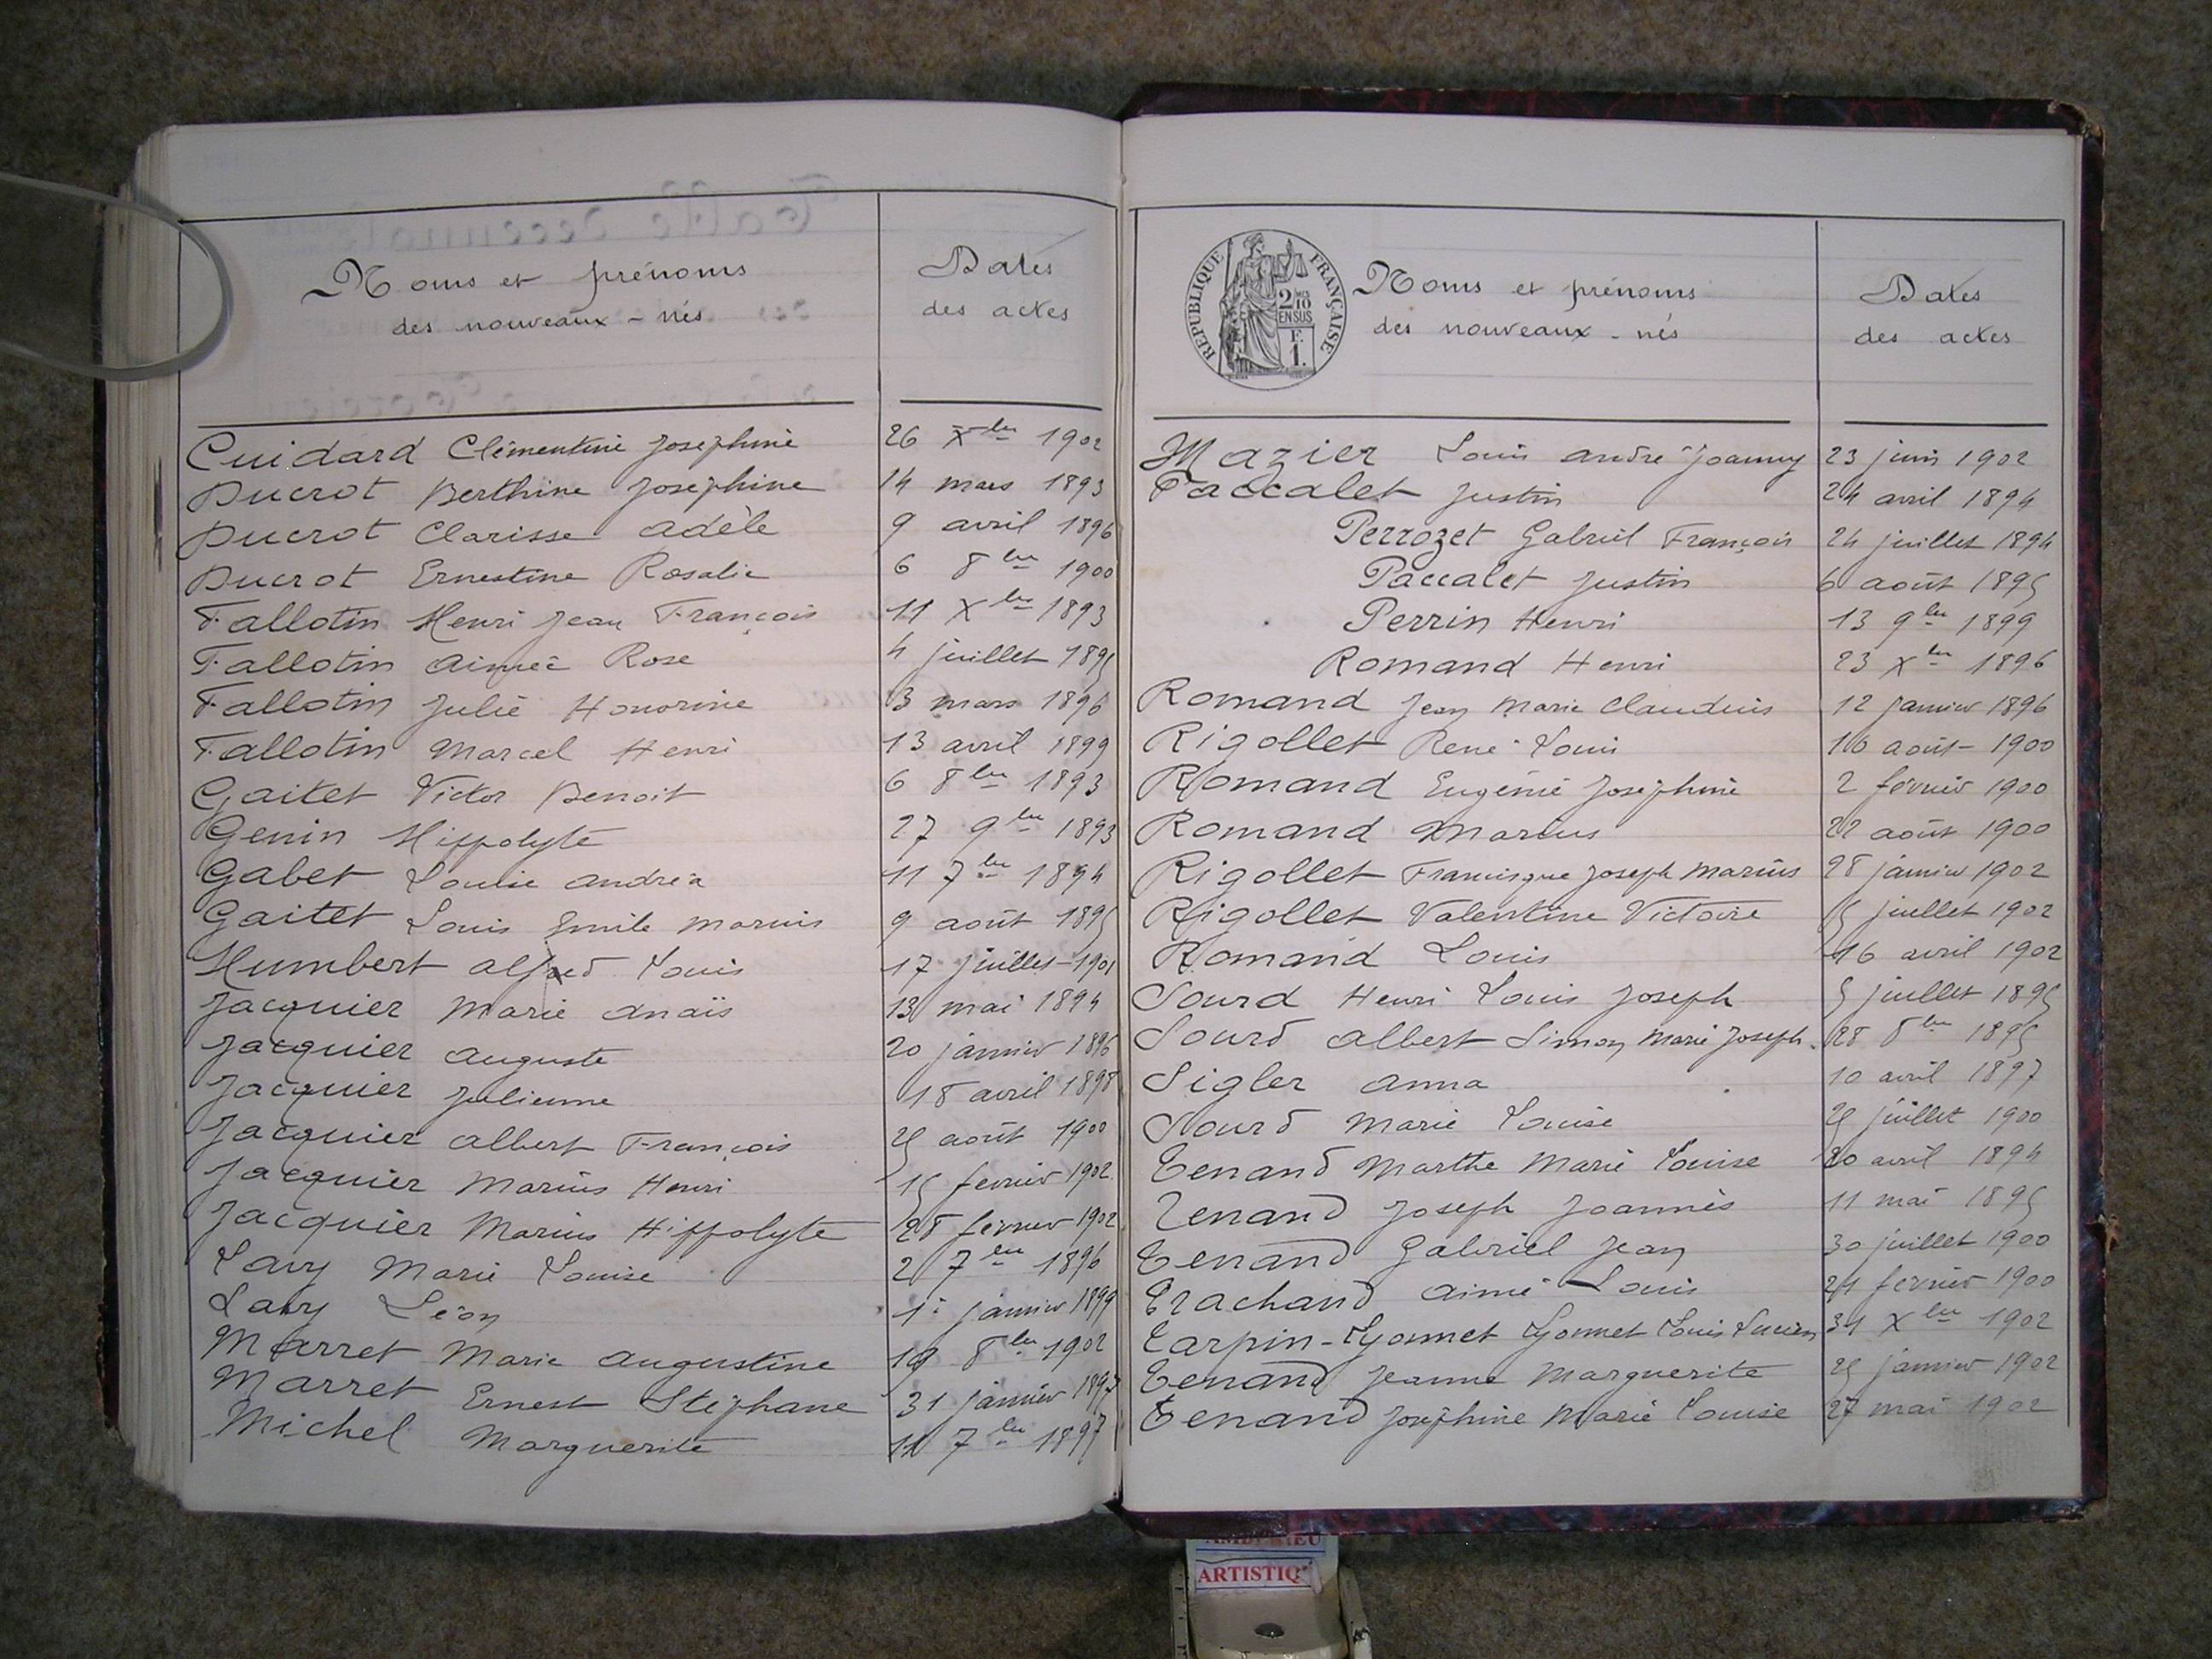 Noms et prénoms
des nouveaux-nés
Dates
des actes
Cuidard Clémentine Joséphine 26 Xbre 1902
Ducrot Berthine Joséphine 14 mars 1893
Ducrot Clarisse Adèle 9 avril 1896
Ducrot Ernestine Rosalie 6 8bre 1900
Fallotin Henri Jean François 11 Xbre 1893
Fallotin Aimée Rose 4 juillet 1895
Fallotin Julie Honorine 3 mars 1896
Fallotin Marcel Henri 13 avril 1899
Gaitet Victor Benoit 6 8bre 1893
Genin Hippolyte 27 9bre 1893
Gabet Louise Andréa 11 7bre 1894
Gaitet Louis Emile Marius 9 août 1895
Humbert Alfred Louis 17 juillet 1901
Jacquier Marie Anaïs 13 mai 1894
Jacquier Auguste 20 janvier 1896
Jacquier Julienne 18 avril 1898
Jacquier Albert François 25 août 1900
Jacquier Marius Henri 15 février 1902
Jacquier Marius Hippolyte 28 février 1902
Lavy Marie Louise 2 7bre 1896
Lavy Léon 1er janvier 1899
Marret Marie Augustine 19 8bre 1902
Marret Ernest Stéphane 31 janvier 1897
Michel Marguerite 11 7bre 1897
RÉPUBLIQUE FRANÇAISE
2 MES 10 EN SUS
F. 1.
Noms et prénoms
des nouveaux-nés
Dates
des actes
Mazier Louis André Joanny 23 juin 1902
Paccalet Justin 24 avril 1894
Perrozet Gabriel François 24 juillet 1894
Paccalet Justin 6 août 1895
Perrin Henri 13 9bre 1899
Romand Henri 23 Xbre 1896
Romand Jean Marie Claudius 12 janvier 1896
Rigollet René Louis 16 août 1900
Romand Eugénie Joséphine 2 février 1900
Romand Marius 22 août 1900
Rigollet Francisque Joseph Marius 28 janvier 1902
Rigollet Valentine Victoire 5 juillet 1902
Romand Louis 16 avril 1902
Sourd Henri Louis Joseph 5 juillet 1895
Sourd Albert Simon Marie Joseph 28 8bre 1895
Sigler Anna 10 avril 1897
Sourd Marie Louise 25 juillet 1900
Tenand Marthe Marie Louise 20 avril 1894
Tenand Joseph Joannès 11 mai 1895
Tenand Gabriel Jean 30 juillet 1900
Trachand Aimé Louis 24 février 1900
Tarpin-Lyonnet Lyonnet Louis Lucien 31 Xbre 1902
Tenand Jeanne Marguerite 25 janvier 1902
Tenand Joséphine Marie Louise 27 mai 1902
ARTISTIQ